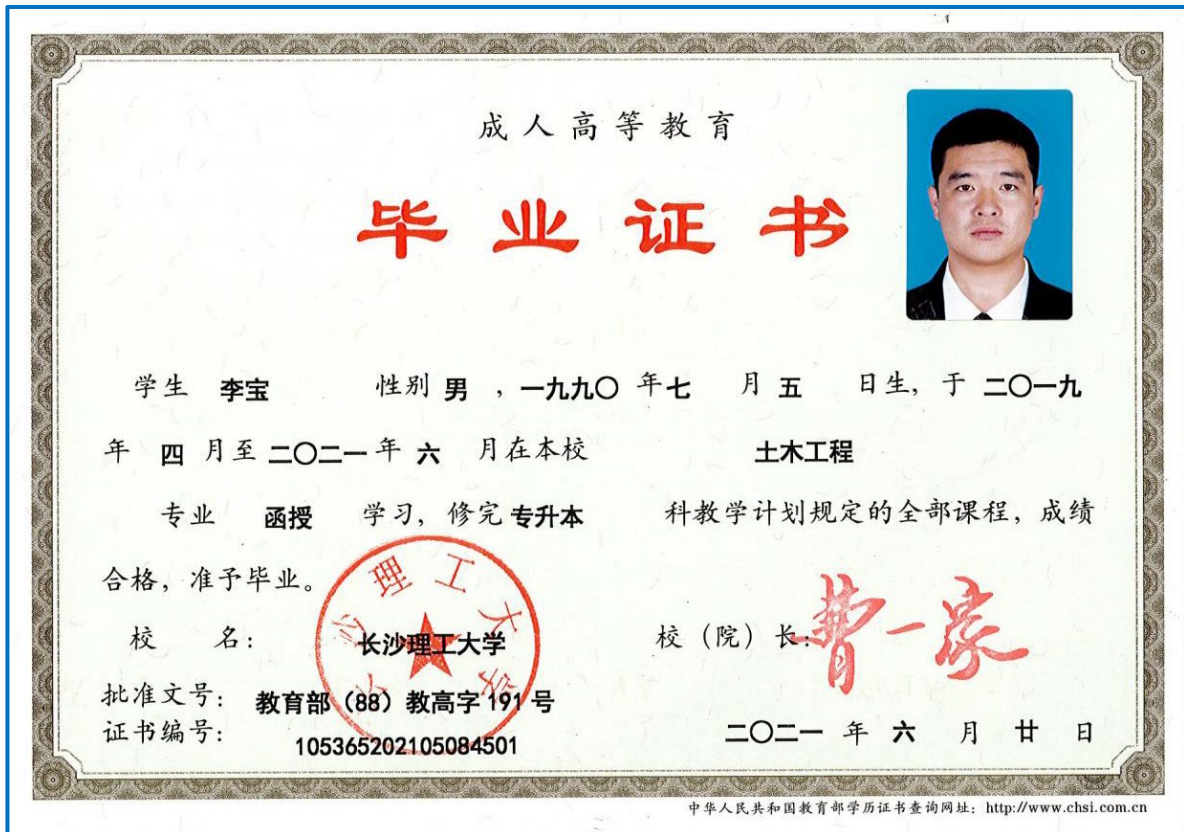 成人高等教育
毕业证书
学生 李宝 性别 男 ，一九九〇 年 七 月 五 日生，于 二〇一九
年 四 月至 二〇二一 年 六 月在本校 土木工程
专业 函授 学习，修完 专升本 科教学计划规定的全部课程，成绩
合格，准予毕业。
长沙理工大学
校 名： 长沙理工大学 校（院）长： 曹一家
批准文号： 教育部（88）教高字 191 号
证书编号： 105365202105084501
二〇二一 年 六 月 廿 日
中华人民共和国教育部学历证书查询网址：http://www.chsi.com.cn